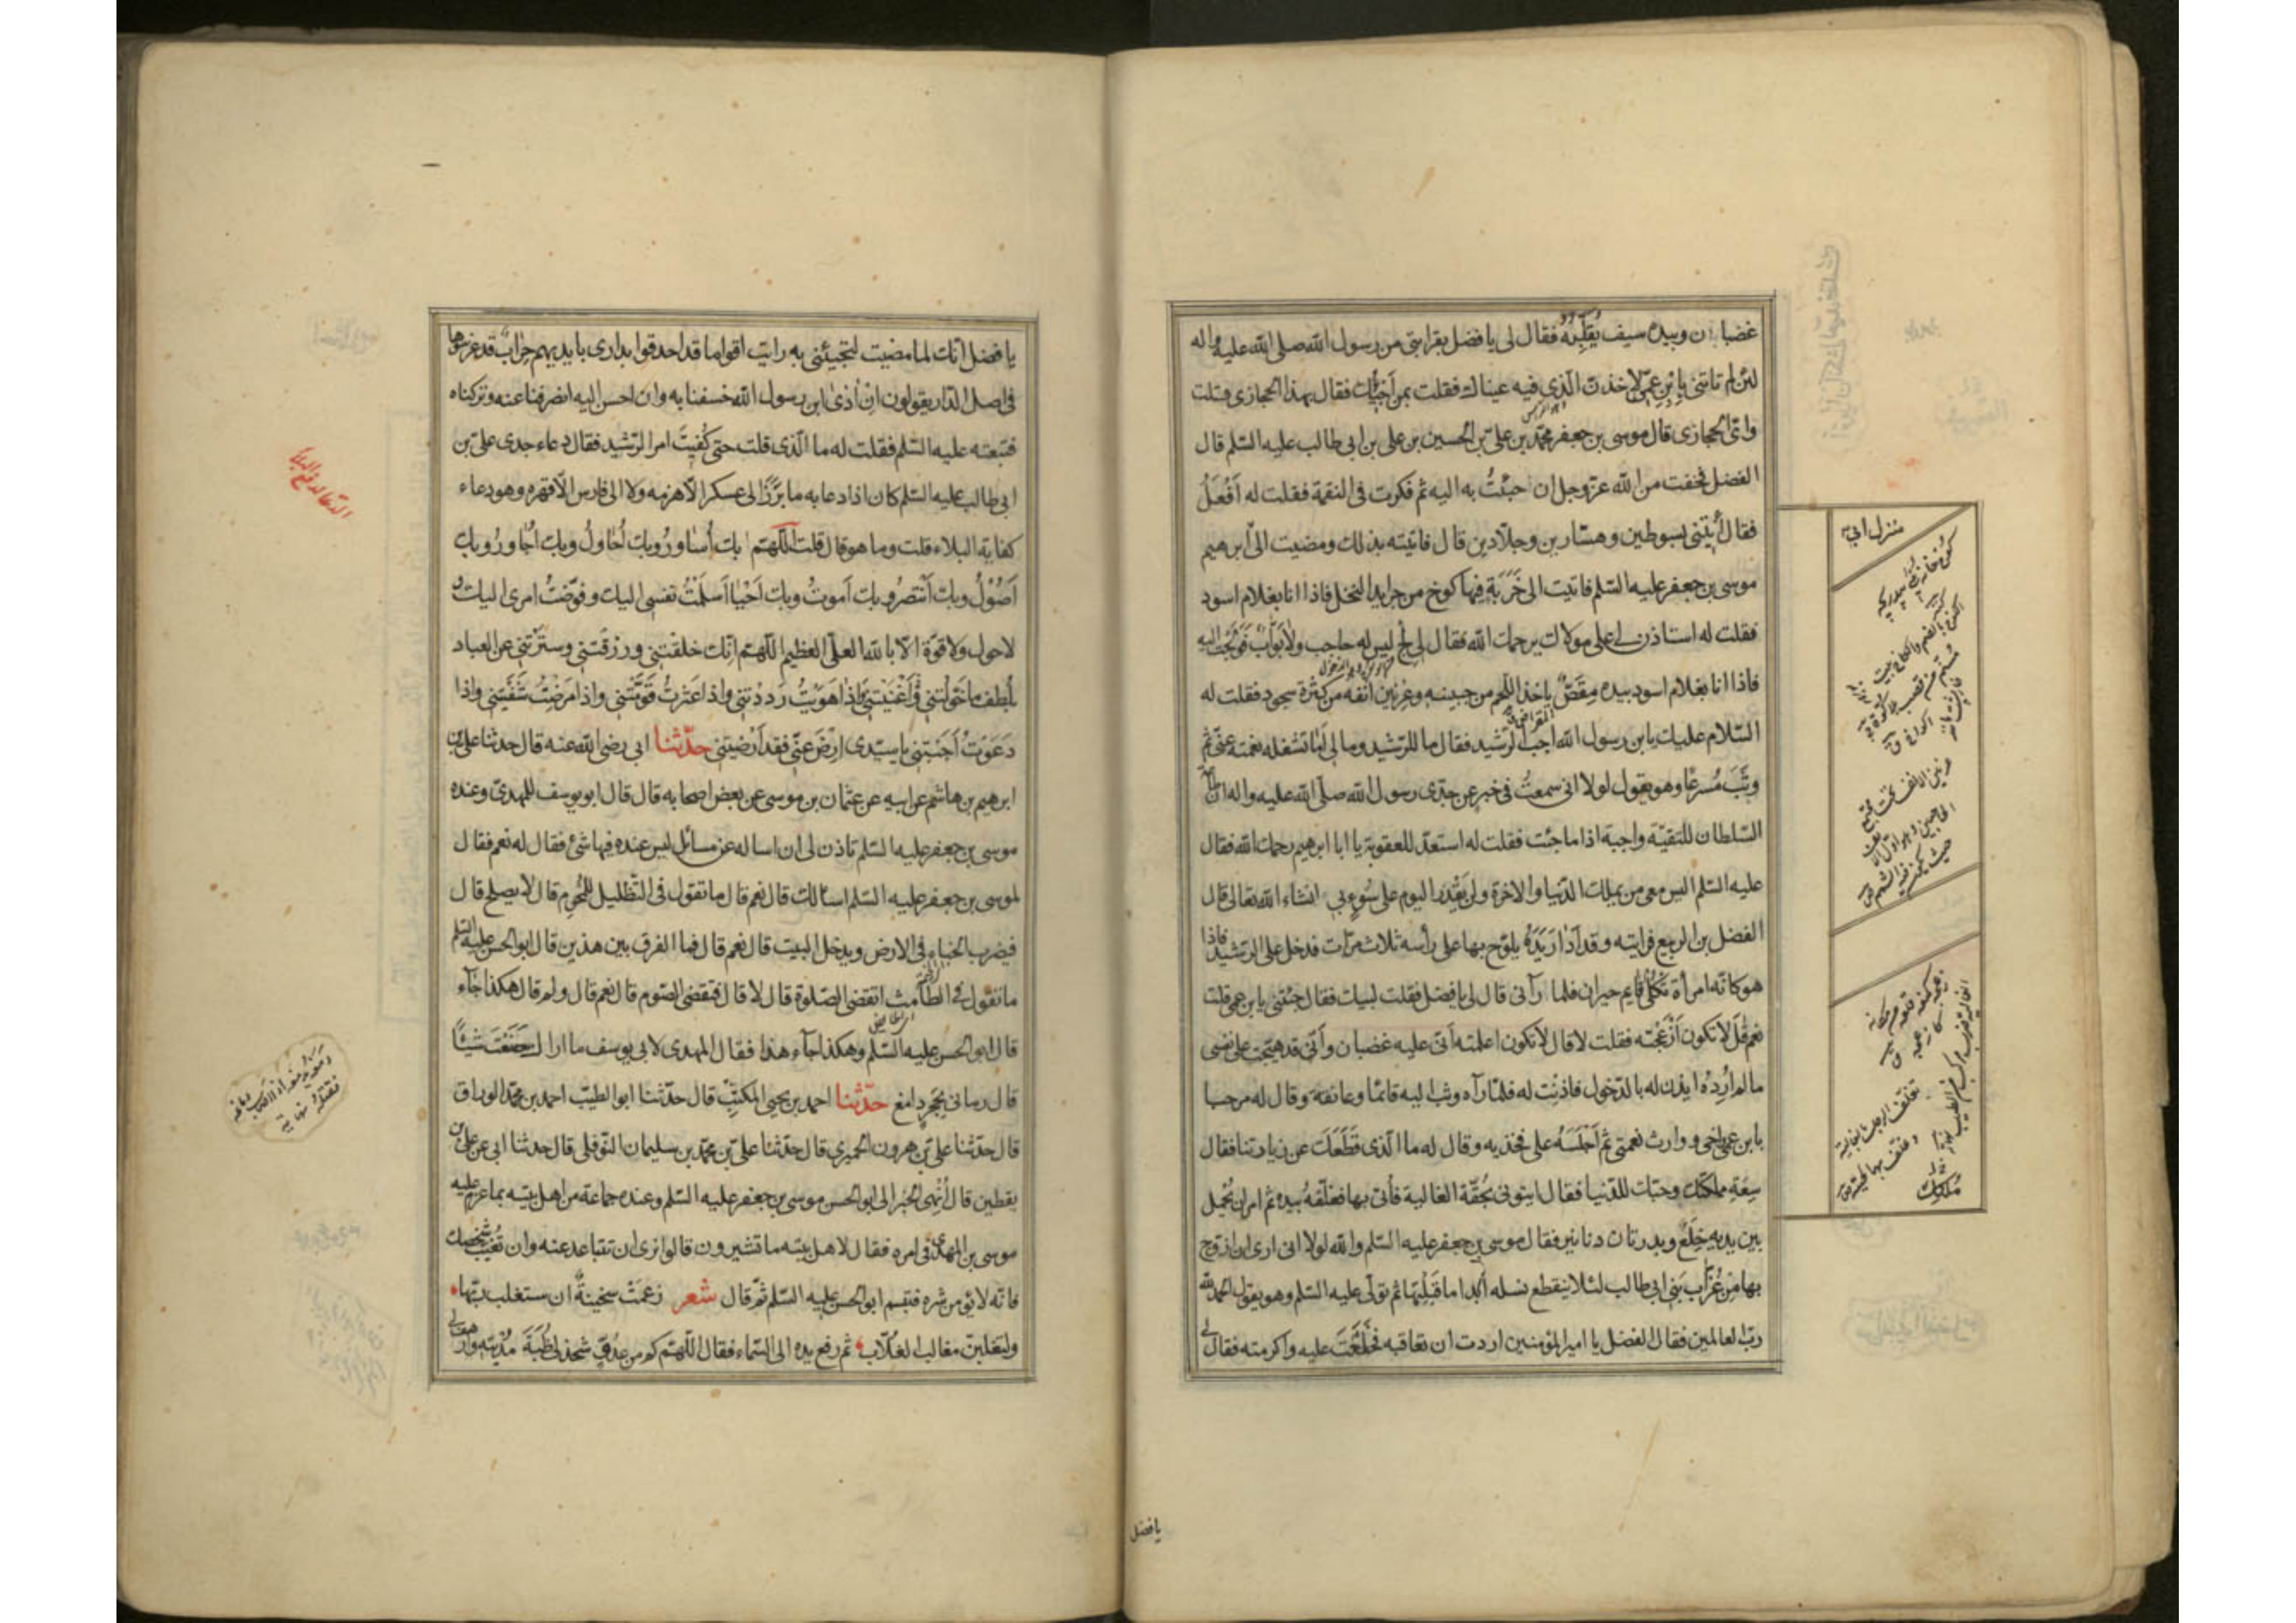 غضبان وبيده سيف يُقلّبه فقال لى يا فضل بقرابتى من رسول الله صلى الله عليه واله
لئن لم تاتنى بابن عمّى لاخذن الّذى فيه عيناك فقلت بمن اجيئك فقال بهذا الحجازى قلت
واىّ الحجازى قال موسى بن جعفر بن محمّد بن علىّ بن الحسين بن على بن ابى طالب عليه السّلم قال
الفضل فخفت من الله عزّوجل ان جئتُ به اليه ثم فكرت فى النقمة فقلت له اَفْعَلُ
فقال اْيتنى بسوطين وهسّارين وجلّادين قال فاتيته بذلك ومضيت الى ابى ابرهيم
موسى بن جعفر عليه السّلم فاتيت الى خَرَبَةٍ فيها كوخ من جرايد النخل فاذا انا بغلام اسود
فقلت له استاذن لى على مولاك يرحمك الله فقال لى لج ليس له حاجب ولا بَوّاب فَوَلَجْتُ اليه
فاذا انا بغلام اسود بيده مِقَصّ ياخذ اللّحم من جبينه وعرنين انفه من كثرة سجوده فقلت له
السّلام عليك يابن رسول الله اجب الرّشيد فقال ما للرّشيد ومالى اَمَا تشغله نعمته عنّى ثم
وثَبَ مُسرعًا وهو يقول لولا انى سمعتُ فى خبر عن جدّى رسول الله صلّى الله عليه واله انّ طاعة
السّلطان للتقيّة واجبة اذا ما جئت فقلت له استعدّ للعقوبة يا ابا ابرهيم رحمك الله فقال
عليه السّلم اليس معى من يملك الدّنيا والاخرة ولن يَقْدِر اليوم على سُوءٍ بى انشاء الله تعالى قال
الفضل بن الربيع فرايته وقد ادار يَدَهُ يلوّح بها على رأسه ثلاث مرّات فدخل على الرّشيد فاذا
هو كانّه امرأة ثَكْلَى قايم حيران فلما رآنى قال لى يا فضل فقلت لبيك فقال جئتنى بابن عمى قلت
نعم قال لا تكون اَزْعَجْتَه فقلت لا قال لا تكون اعلمته انّى عليه غضبان وأنّى قد هيّجت على نفسى
ما لم اُرِدْهُ ايذن له بالدّخول فاذِنْت له فلمّا رآه وثب اليه قائمًا وعانقه وقال له مرحبا
بابن عمّى واخى ووارث نعمتى ثم اَجْلَسَهُ على فخذيه وقال له ما الّذى قَطَعَكَ عن زيارتنا فقال
سِعَةِ مملكتك وحبّك للدّنيا فقال ايتونى بحُقّة الغالية فأتى بها فغلّفهُ بيده ثم امر ان يُحمل
بين يديه خِلَعٌ وبدرتان دنانير فقال موسى بن جعفر عليه السّلم والله لولا انى ارى ان ازوّج
بها مِنْ عُزّاب بَنى ابى طالب لئلا ينقطع نسله ابدا ما قَبِلْتُها ثم تولّى عليه السّلم وهو يقول الحمد لله
ربّ العالمين فقال الفضل يا امير المؤمنين اردت ان تعاقبه فخَلَعْتَ عليه واكرمته فقال لى
يا فضل
يا فضل انّك لما مضيت لتجيئنى به رايت اقواما قد احدقوا بدارى بايديهم حِرابٌ قد غرسوها
فى اصل الدّار يقولون اِنْ اٰذىٰ ابن رسول الله خسفنا به وان احسن اليه انصرفنا عنه وتركناه
فتبعته عليه السّلم فقلت له ما الّذى قلت حتى كُفِيتَ امر الرّشيد فقال دعاء جدى على بن
ابى طالب عليه السّلم كان اذا دعا به ما بَرَزَ الى عسكر الّا هزمه ولا الى فارس الّا قهره وهو دعاء
كفاية البلاء قلت وما هو قال قلت اَللّهمّ بك أُساورُ وبك اُحَاولُ وبك اُجَاورُ وبك
اَصُوْلُ وبك اَنْتصرُ وبك اَموتُ وبك اَحْيَا اَسلَمْتُ نفسى اليك وفوّضتُ امرى اليك و
لا حول ولا قوّة الّا بالله العلىّ العظيم اللّهمّ انّك خلقتنى ورزقتنى وسترتنى عن العباد
بلُطف ما خوّلتنى وَاَغنَيتنى وَاِذا هَوَيْتُ رَدَدْتنى واذا عَثَرتُ قَوّمْتَنى واذا مَرَضْتُ شَفَيْتنى واذا
دَعَوْتُ اَجَبتنى يا سيّدى اِرْضَ عَنّى فقد اَرْضيتنى حدّثنا ابى رضى الله عنه قال حدثنا على بن
ابرهيم بن هاشم عن ابيه عن عثمان بن موسى عن بعض اصحابه قال قال ابو يوسف للمهدىّ وعنده
موسى بن جعفر عليه السّلم تاذن لى ان اساله عن مسائل ليس عنده فيها شئ فقال له نعم فقال
لموسى بن جعفر عليه السّلم اسالك قال نعم قال ما تقول فى التّظليل للمُحرِم قال لا يصلح قال
فيضرب الخباء فى الارض ويدخل البيت قال نعم قال فما الفرق بين هذين قال ابو الحسن عليه السّلم
ما تقول فى الطّامث اتقضى الصّلوة قال لا قال فتقضى الصّوم قال نعم قال ولم قال هكذا جآء
قال ابو الحسن عليه السّلم وهكذا جآء هذا فقال المهدى لابى يوسف ما اراك صَنَعْتَ شيئًا
قال رمانى بحَجَرٍ دامغ حدّثنا احمد بن يحيى المكتّب قال حدّثنا ابو الطيّب احمد بن محمّد الورّاق
قال حدّثنا علىّ بن هرون الحميرى قال حدّثنا علىّ بن محمّد بن سليمان النّوفلى قال حدثنا ابى عن علىّ بن
يقطين قال اُنْهِىَ الخبر الى ابو الحسن موسى بن جعفر عليه السّلم وعنده جماعة من اهل بيته بما عزم عليه
موسى بن المهدى فى امره فقال لاهل بيته ما تشيرون قالوا نرى ان تتباعد عنه وان تُغَيّب شخصك
فانّه لا يؤمن شره فتبسم ابو الحسن عليه السّلم ثمّ قال شعر زعمَتْ سخينةُ ان ستغلب ربّها
وليَغلبنّ مغالب الغلّاب ثم رفع يده الى السّماء فقال اللّهمّ كم من عدُوّ شحذ لى ظُبَةَ مُدْيَته وارهف لى